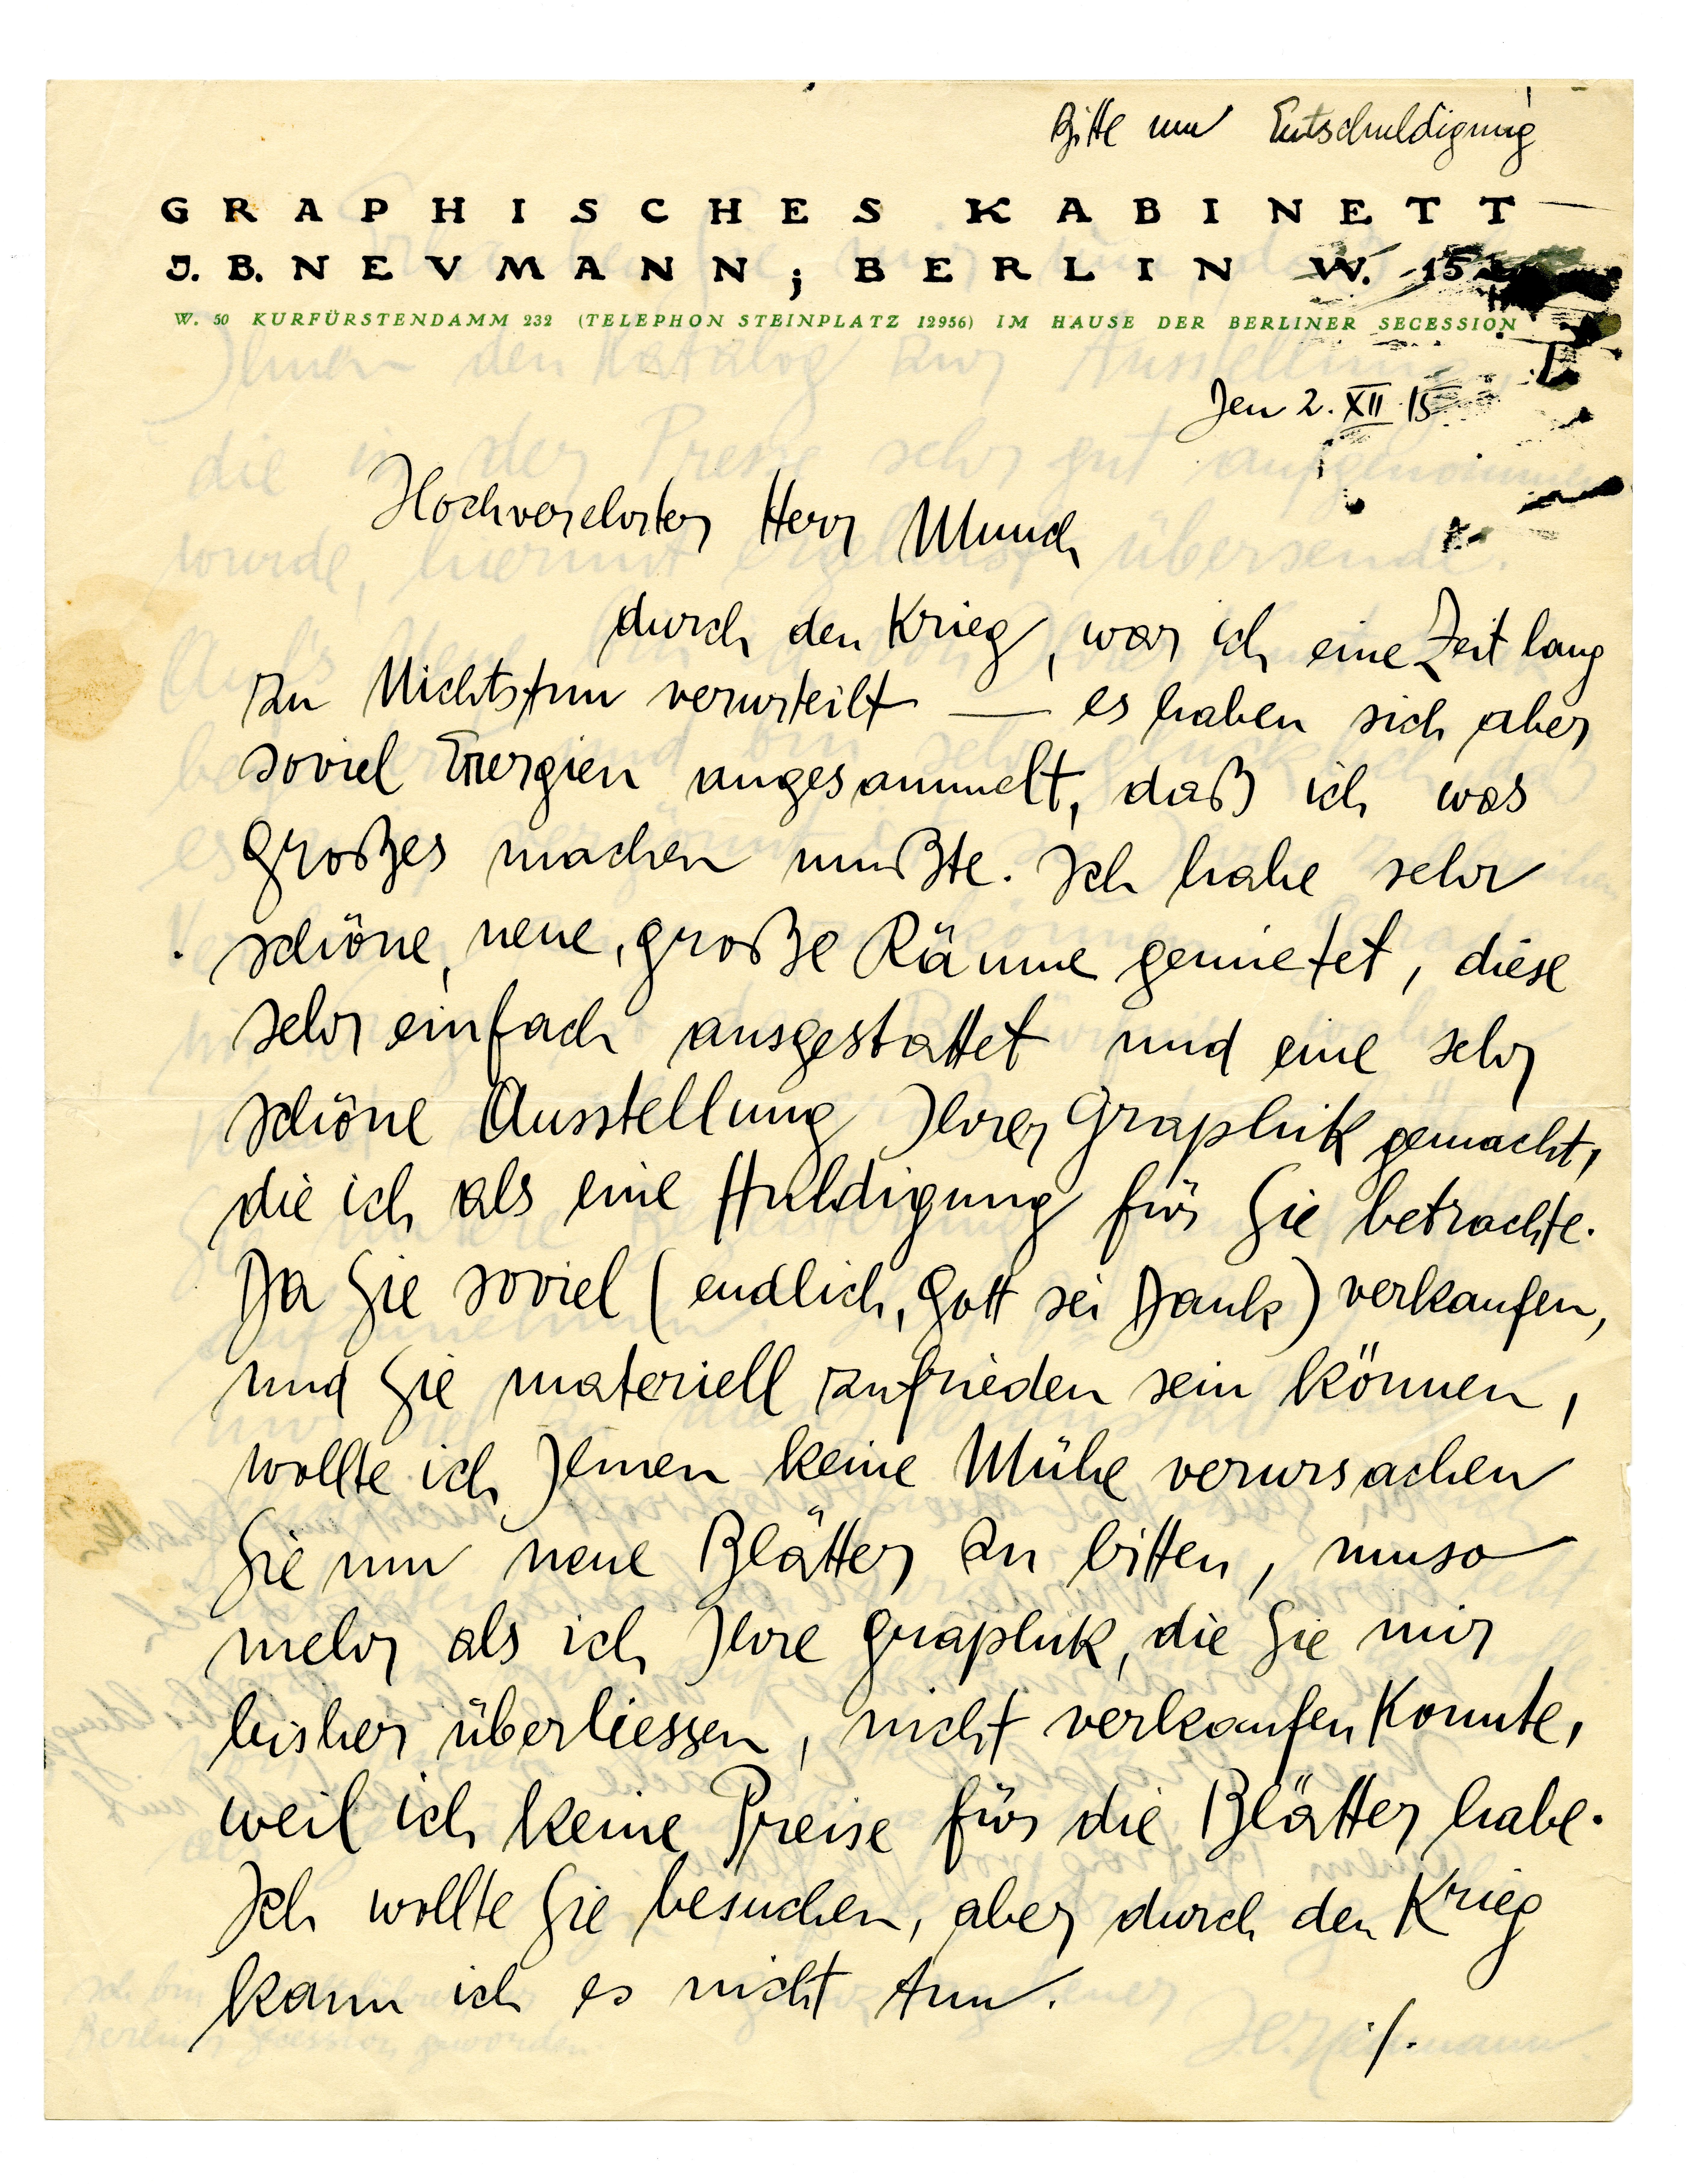 Bitte um Entschuldigung
GRAPHISCHES KABINETT
J. B. NEVMANN; BERLIN W. 15
W. 50 KURFÜRSTENDAMM 232 (TELEPHON STEINPLATZ 12956) IM HAUSE DER BERLINER SECESSION
Den 2. XII 15
Hochverehrter Herr Munch
durch den Krieg, war ich eine Zeit lang
zu Nichtstun verurteilt — es haben sich aber
soviel Energien angesammelt, daß ich was
Großes machen mußte. Ich habe sehr
schöne, neue, große Räume gemietet, diese
sehr einfach ausgestattet und eine sehr
schöne Ausstellung Ihrer Graphik gemacht,
die ich als eine Huldigung für Sie betrachte.
Da Sie soviel (endlich, Gott sei Dank) verkaufen,
und Sie materiell zufrieden sein können,
wollte ich Ihnen keine Mühe verursachen
Sie um neue Blätter zu bitten, umso
mehr als ich Ihre Graphik, die Sie mir
bisher überliessen, nicht verkaufen konnte,
weil ich keine Preise für die Blätter habe.
Ich wollte Sie besuchen, aber durch den Krieg
kann ich es nicht tun.
./.